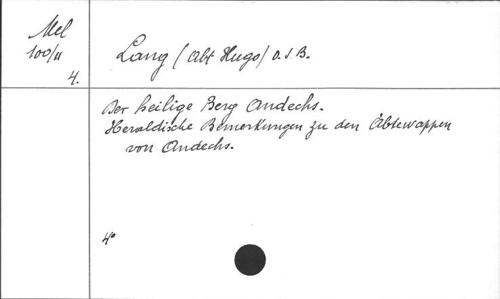 Mel
100/11
4.
Lang (Abt Hugo) O.S.B.
Der heilige Berg Andechs.
Heraldische Bemerkungen zu den Äbtewappen
von Andechs.
4°